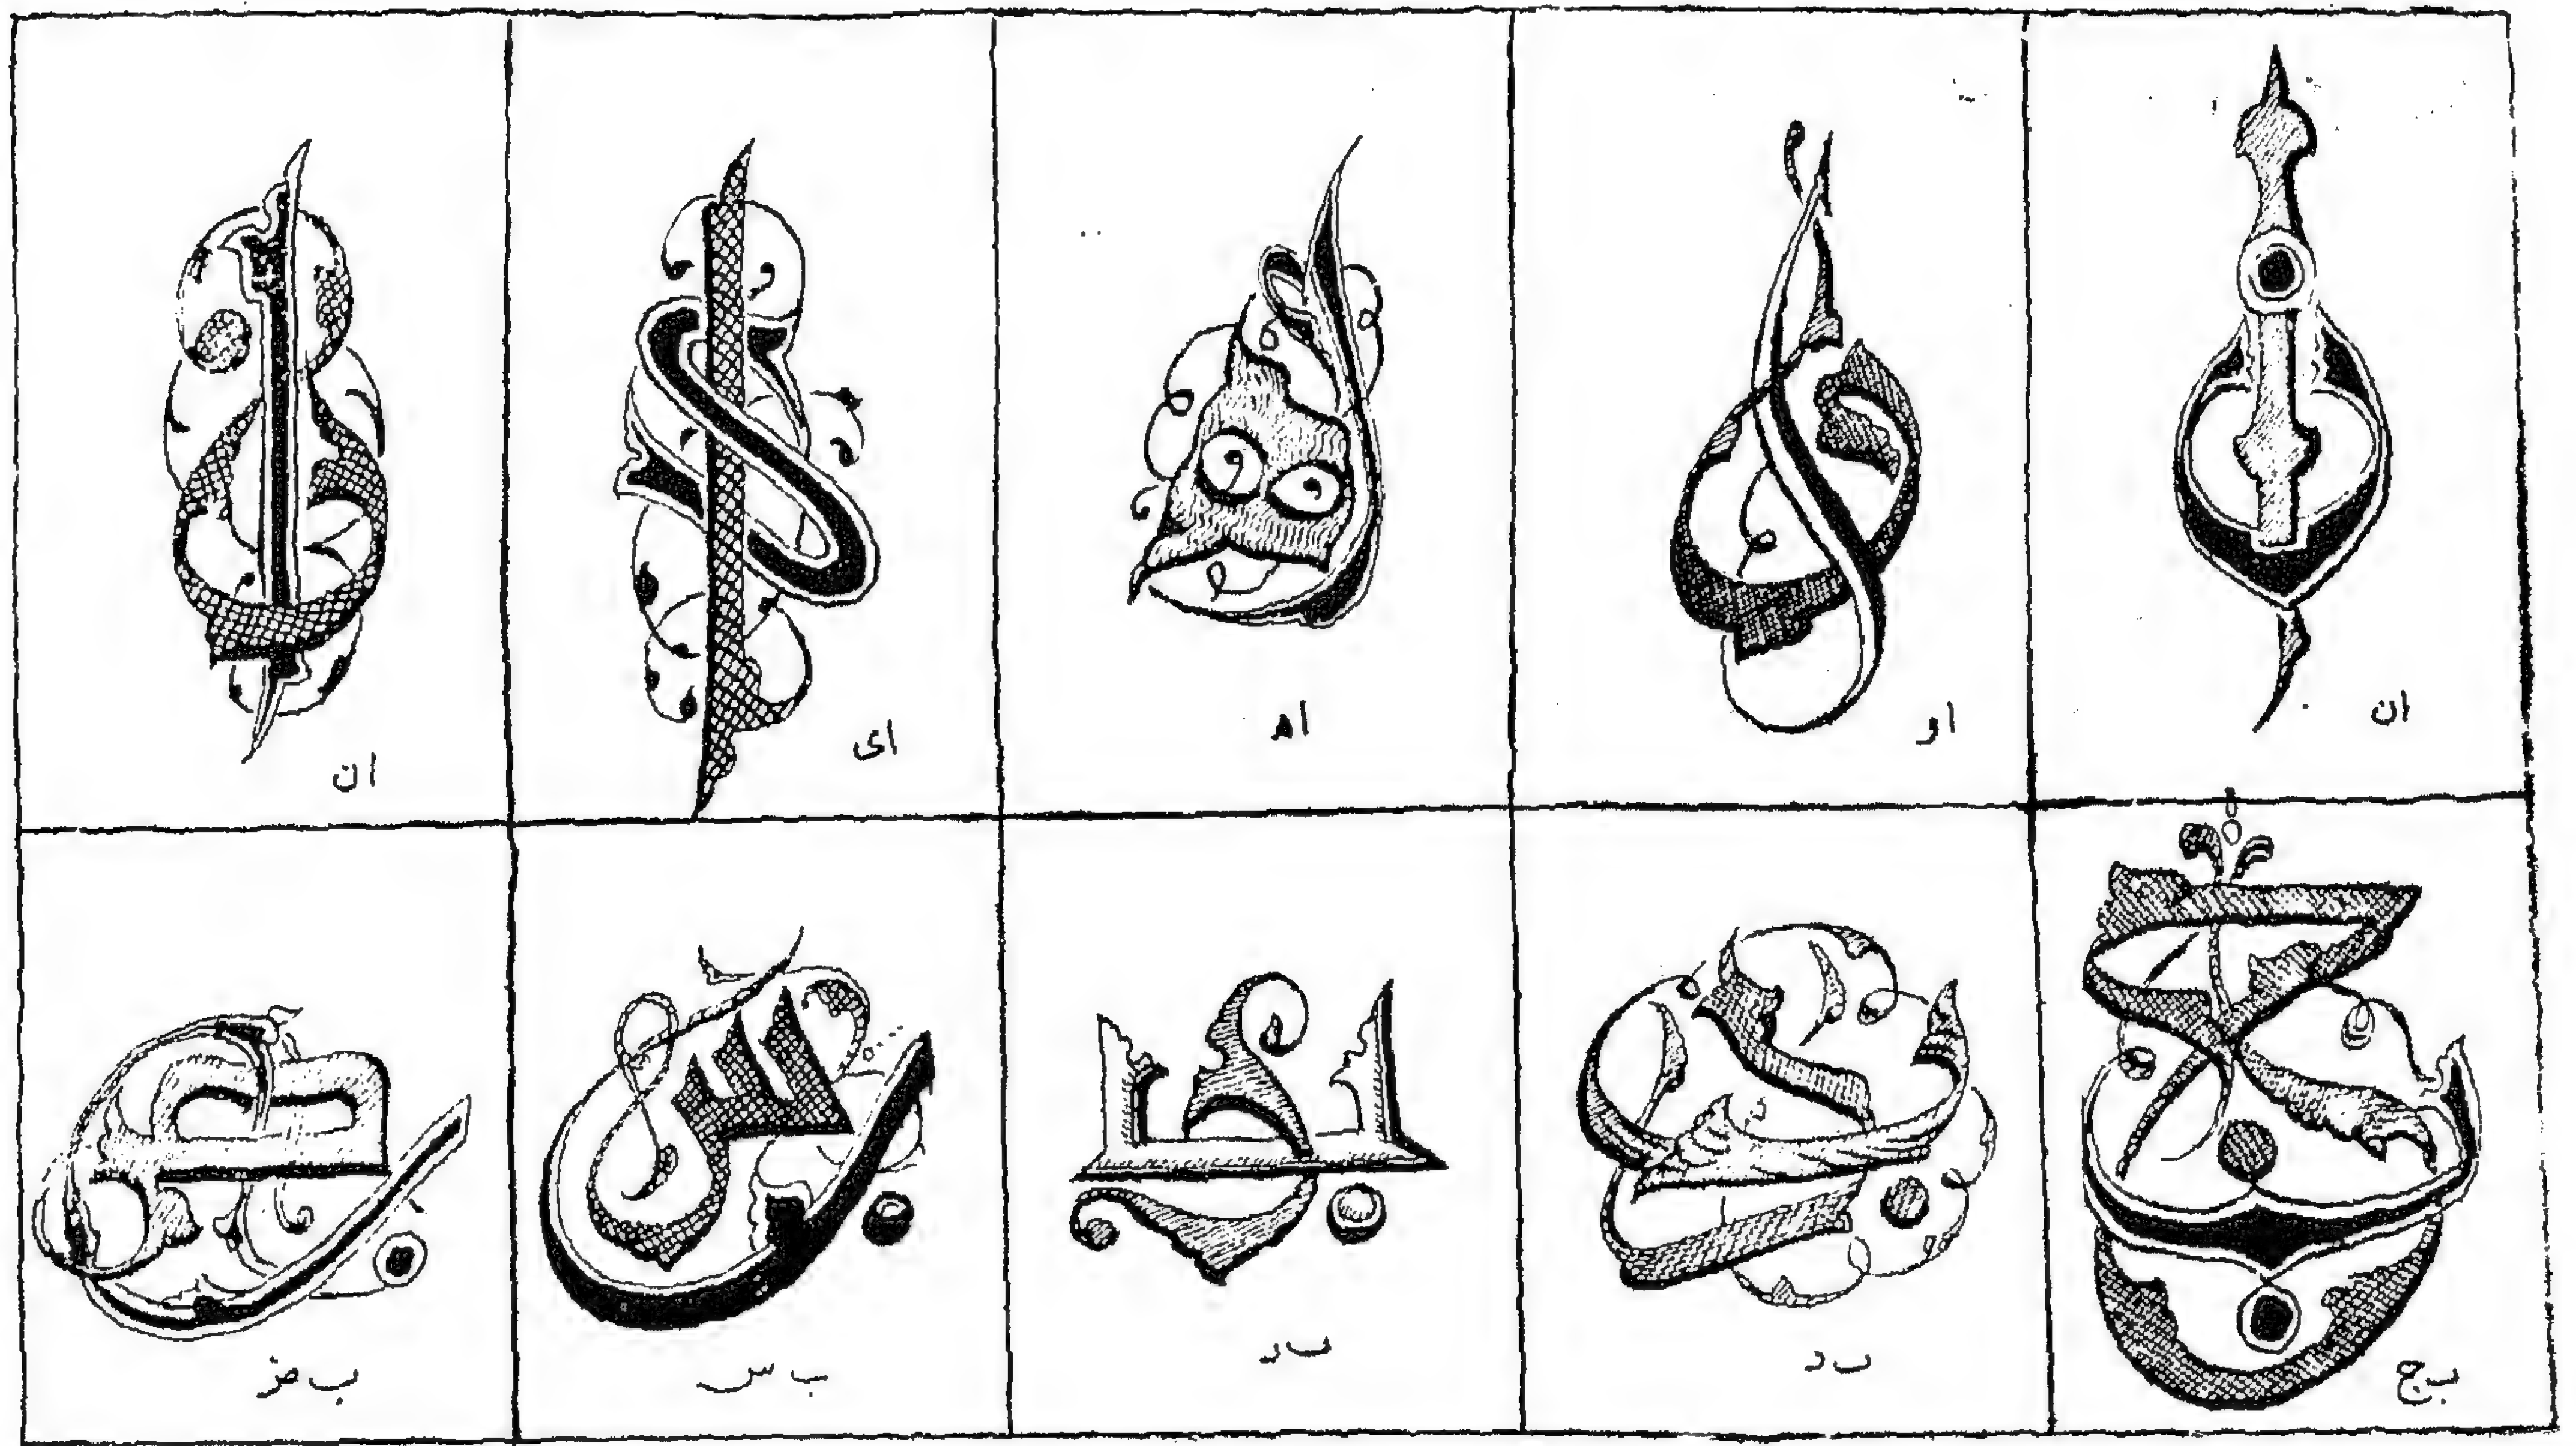 ان
او
اه
ای
ان
ب ج
ب د
ب ر
ب س
ب ص